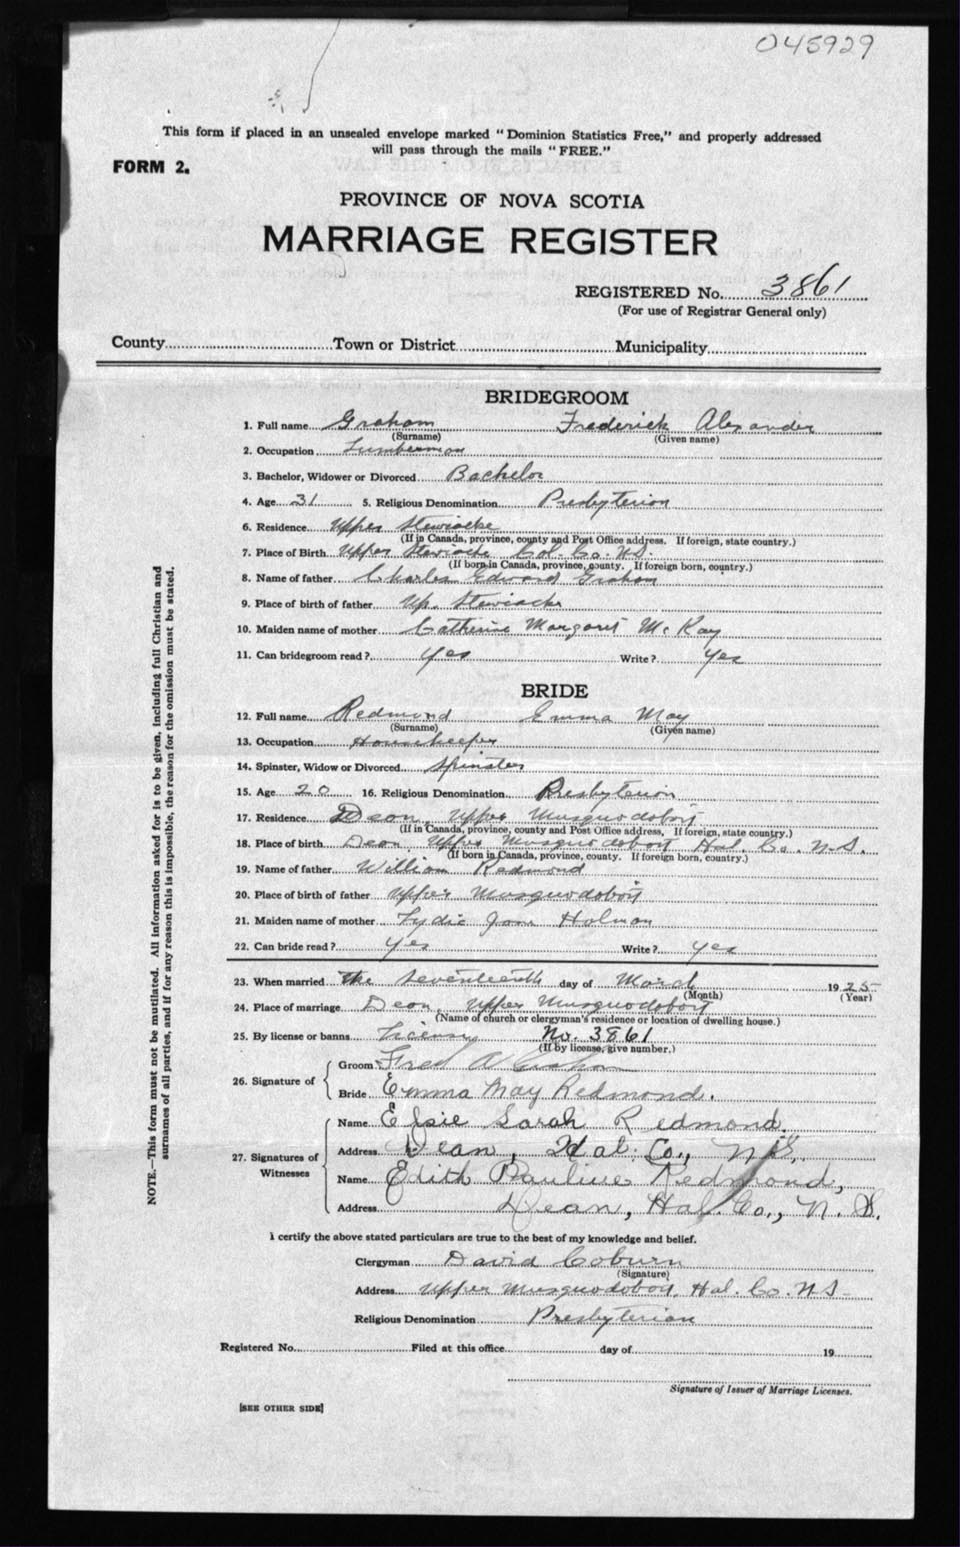 045929
This form if placed in an unsealed envelope marked "Dominion Statistics Free," and properly addressed
will pass through the mails "FREE."
FORM 2.
PROVINCE OF NOVA SCOTIA
MARRIAGE REGISTER
REGISTERED No. 3861
(For use of Registrar General only)
County Town or District Municipality
BRIDEGROOM
1. Full name Graham Frederick Alexander
(Surname) (Given name)
2. Occupation Lumberman
3. Bachelor, Widower or Divorced Bachelor
4. Age 31 5. Religious Denomination Presbyterian
6. Residence Upper Stewiacke
(If in Canada, province, county and Post Office address. If foreign, state country.)
7. Place of Birth Upper Stewiacke Col. Co. N.S.
(If born in Canada, province, county. If foreign born, country.)
8. Name of father Charles Edward Graham
9. Place of birth of father Up. Stewiacke
10. Maiden name of mother Catherine Margaret McKay
11. Can bridegroom read? yes Write? yes
BRIDE
12. Full name Redmond Emma May
(Surname) (Given name)
13. Occupation Housekeeper
14. Spinster, Widow or Divorced Spinster
15. Age 20 16. Religious Denomination Presbyterian
17. Residence Dean, Upper Musquodoboit
(If in Canada, province, county and Post Office address, If foreign, state country.)
18. Place of birth Dean, Upper Musquodoboit Hal. Co. N.S.
(If born in Canada, province, county. If foreign born, country.)
19. Name of father William Redmond
20. Place of birth of father Upper Musquodoboit
21. Maiden name of mother Lydie Jane Holman
22. Can bride read? yes Write? yes
23. When married the seventeenth day of March 1925
(Month) (Year)
24. Place of marriage Dean, Upper Musquodoboit
(Name of church or clergyman's residence or location of dwelling house.)
25. By license or banns License No. 3861
(If by license, give number.)
26. Signature of Groom Fred A Graham
Bride Emma May Redmond.
27. Signatures of Witnesses Name Elsie Sarah Redmond.
Address Dean, Hal. Co., N.S.
Name Edith Pauline Redmond,
Address Dean, Hal. Co., N. S.
I certify the above stated particulars are true to the best of my knowledge and belief.
Clergyman David Coburn
(Signature)
Address Upper Musquodoboit, Hal. Co. N.S.
Religious Denomination Presbyterian
Registered No. Filed at this office day of 19
Signature of Issuer of Marriage Licenses.
[SEE OTHER SIDE]
NOTE.—This form must not be mutilated. All information asked for is to be given, including full Christian and
surnames of all parties, and if for any reason this is impossible, the reason for the omission must be stated.